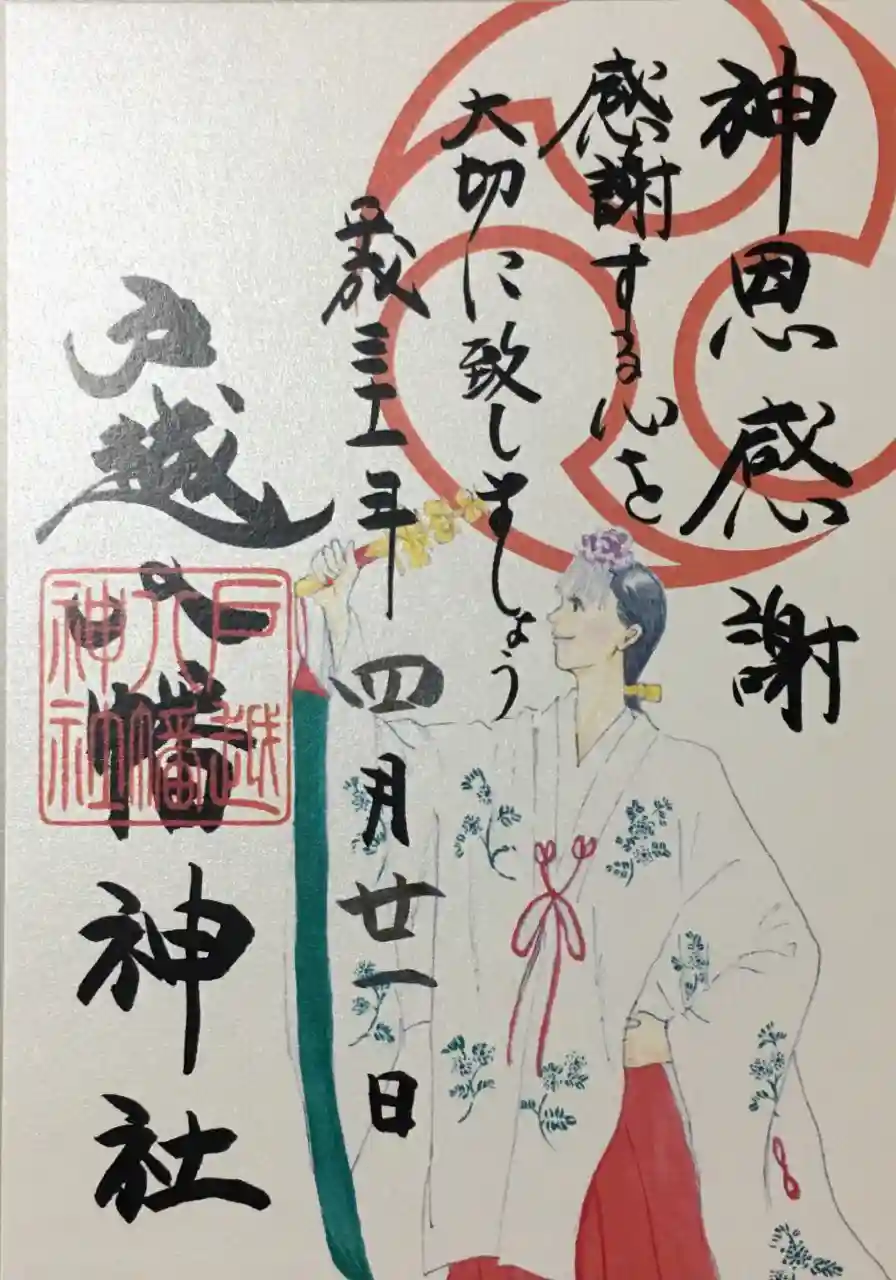 神恩感謝
感謝する心を
大切に致しましょう
平成三十一年四月廿一日
戸越八幡神社
戸越
八幡
神社